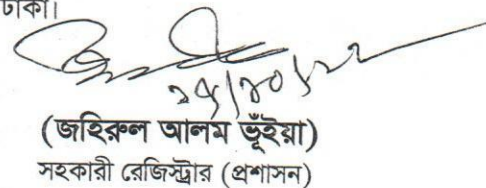 ঢাকা।
(জহিরুল আলম ভূঁইয়া)
সহকারী রেজিস্ট্রার (প্রশাসন)